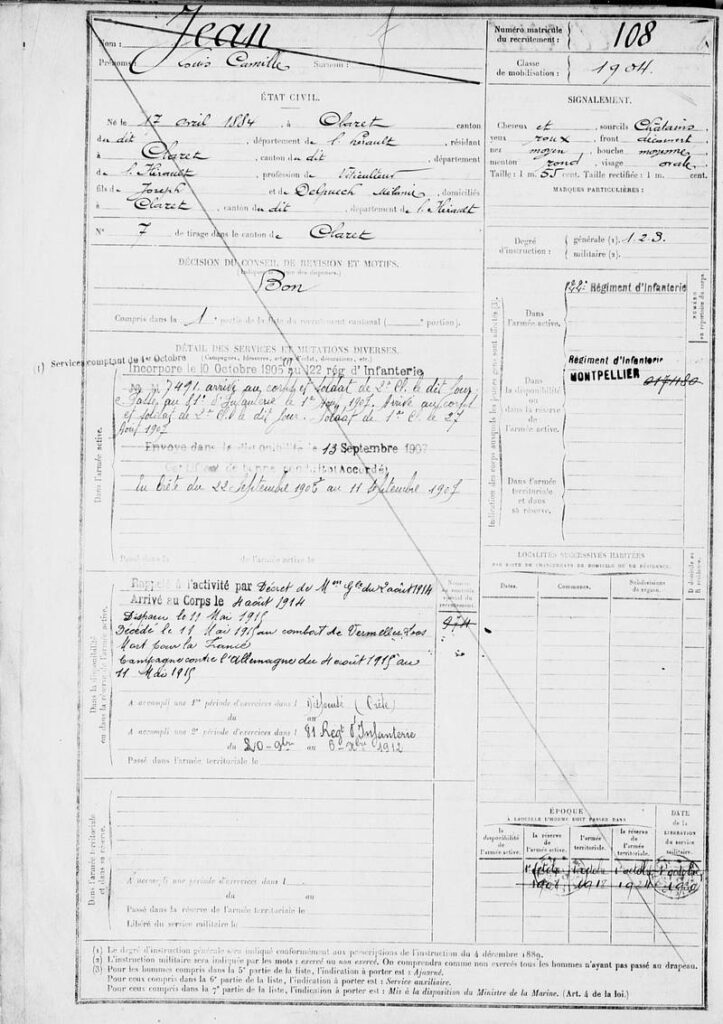 Nom : Jean
Prénoms : Louis Camille Surnom :
Numéro matricule du recrutement : 108
Classe de mobilisation : 1904.
ÉTAT CIVIL.
Né le 17 avril 1884, à Claret canton
du dit, département de l'Hérault, résidant
à Claret, canton du dit, département
de l'Hérault, profession de
fils de Joseph et de Delpuech Mélanie, domiciliés
à Claret, canton du dit, département de l'Hérault
N° 7 de tirage dans le canton de Claret
SIGNALEMENT.
Cheveux et sourcils Châtains
yeux roux, front découvert
nez moyen, bouche moyenne
menton rond, visage ovale
Taille : 1 m. 55 cent. Taille rectifiée : 1 m. cent.
MARQUES PARTICULIÈRES :
Degré d'instruction : générale (1). 1.2.3.
militaire (2).
DÉCISION DU CONSEIL DE RÉVISION ET MOTIFS.
Bon
Compris dans la 1e partie de la liste du recrutement cantonal ( e portion).
DÉTAIL DES SERVICES ET MUTATIONS DIVERSES.
(Campagnes, blessures, actions d'éclat, décorations, etc.)
(1) Services comptant du 1er Octobre
Incorporé le 10 Octobre 1905 au 122 rég d'Infanterie
7491, arrivé au corps et soldat de 2e Cl. le dit jour
Passé au 81e d'Infanterie le 1907. Arrivé au corps
et soldat de 2e Cl. le dit jour. Soldat de 1re Cl. le 27
1907
Envoyé dans la disponibilité le 13 Septembre 1907
Certificat de bonne conduite Accordé
En Crète du 22 Septembre 1906 au 11 Septembre 1907
Dans l'armée active.
Passé dans l de l'armée active le
Rappelé à l'activité par Décret de Mon Gle du 2 août 1914
Arrivé au Corps le 4 août 1914
Disparu le 11 Mai 1915
Décédé le 11 Mai 1915 au combat de Vermelles Loos
Mort pour la France
Campagne contre l'Allemagne du 4 août 1915 au
11 Mai 1915
Dans la disponibilité ou dans la réserve de l'armée active.
974
A accompli une 1re période d'exercices dans l Dispensé (Crète)
du au
A accompli une 2e période d'exercices dans l 81 Regt d'Infanterie
du 20 9bre au 6 Xbre 1912
Passé dans l'armée territoriale le
Dans l'armée territoriale et dans sa réserve.
A accompli une période d'exercices dans l
du au
Passé dans la réserve de l'armée territoriale le
Libéré du service militaire le
Indication des corps auxquels les jeunes gens sont affectés (3).
NUMÉRO au répertoire du corps.
Dans l'armée active. 122e Régiment d'Infanterie
Dans la disponibilité ou dans la réserve de l'armée active. Régiment d'Infanterie
MONTPELLIER 017480
Dans l'armée territoriale et dans sa réserve.
LOCALITÉS SUCCESSIVES HABITÉES
PAR SUITE DE CHANGEMENTS DE DOMICILE OU DE RÉSIDENCE.
Dates. Communes. Subdivisions de région. D domicile ou R résidence.
ÉPOQUE
À LAQUELLE L'HOMME DOIT PASSER DANS
DATE de la LIBÉRATION du service militaire.
la disponibilité de l'armée active. la réserve de l'armée active. l'armée territoriale. la réserve de l'armée territoriale.
1908 1918 1924 1930
(1) Le degré d'instruction générale sera indiqué conformément aux prescriptions de l'instruction du 4 décembre 1889.
(2) L'instruction militaire sera indiquée par les mots : exercé ou non exercé. On comprendra comme non exercés tous les hommes n'ayant pas passé au drapeau.
(3) Pour les hommes compris dans la 5e partie de la liste, l'indication à porter est : Ajourné.
Pour ceux compris dans la 6e partie de la liste, l'indication à porter est : Service auxiliaire.
Pour ceux compris dans la 7e partie de la liste, l'indication à porter est : Mis à la disposition du Ministre de la Marine. (Art. 4 de la loi.)